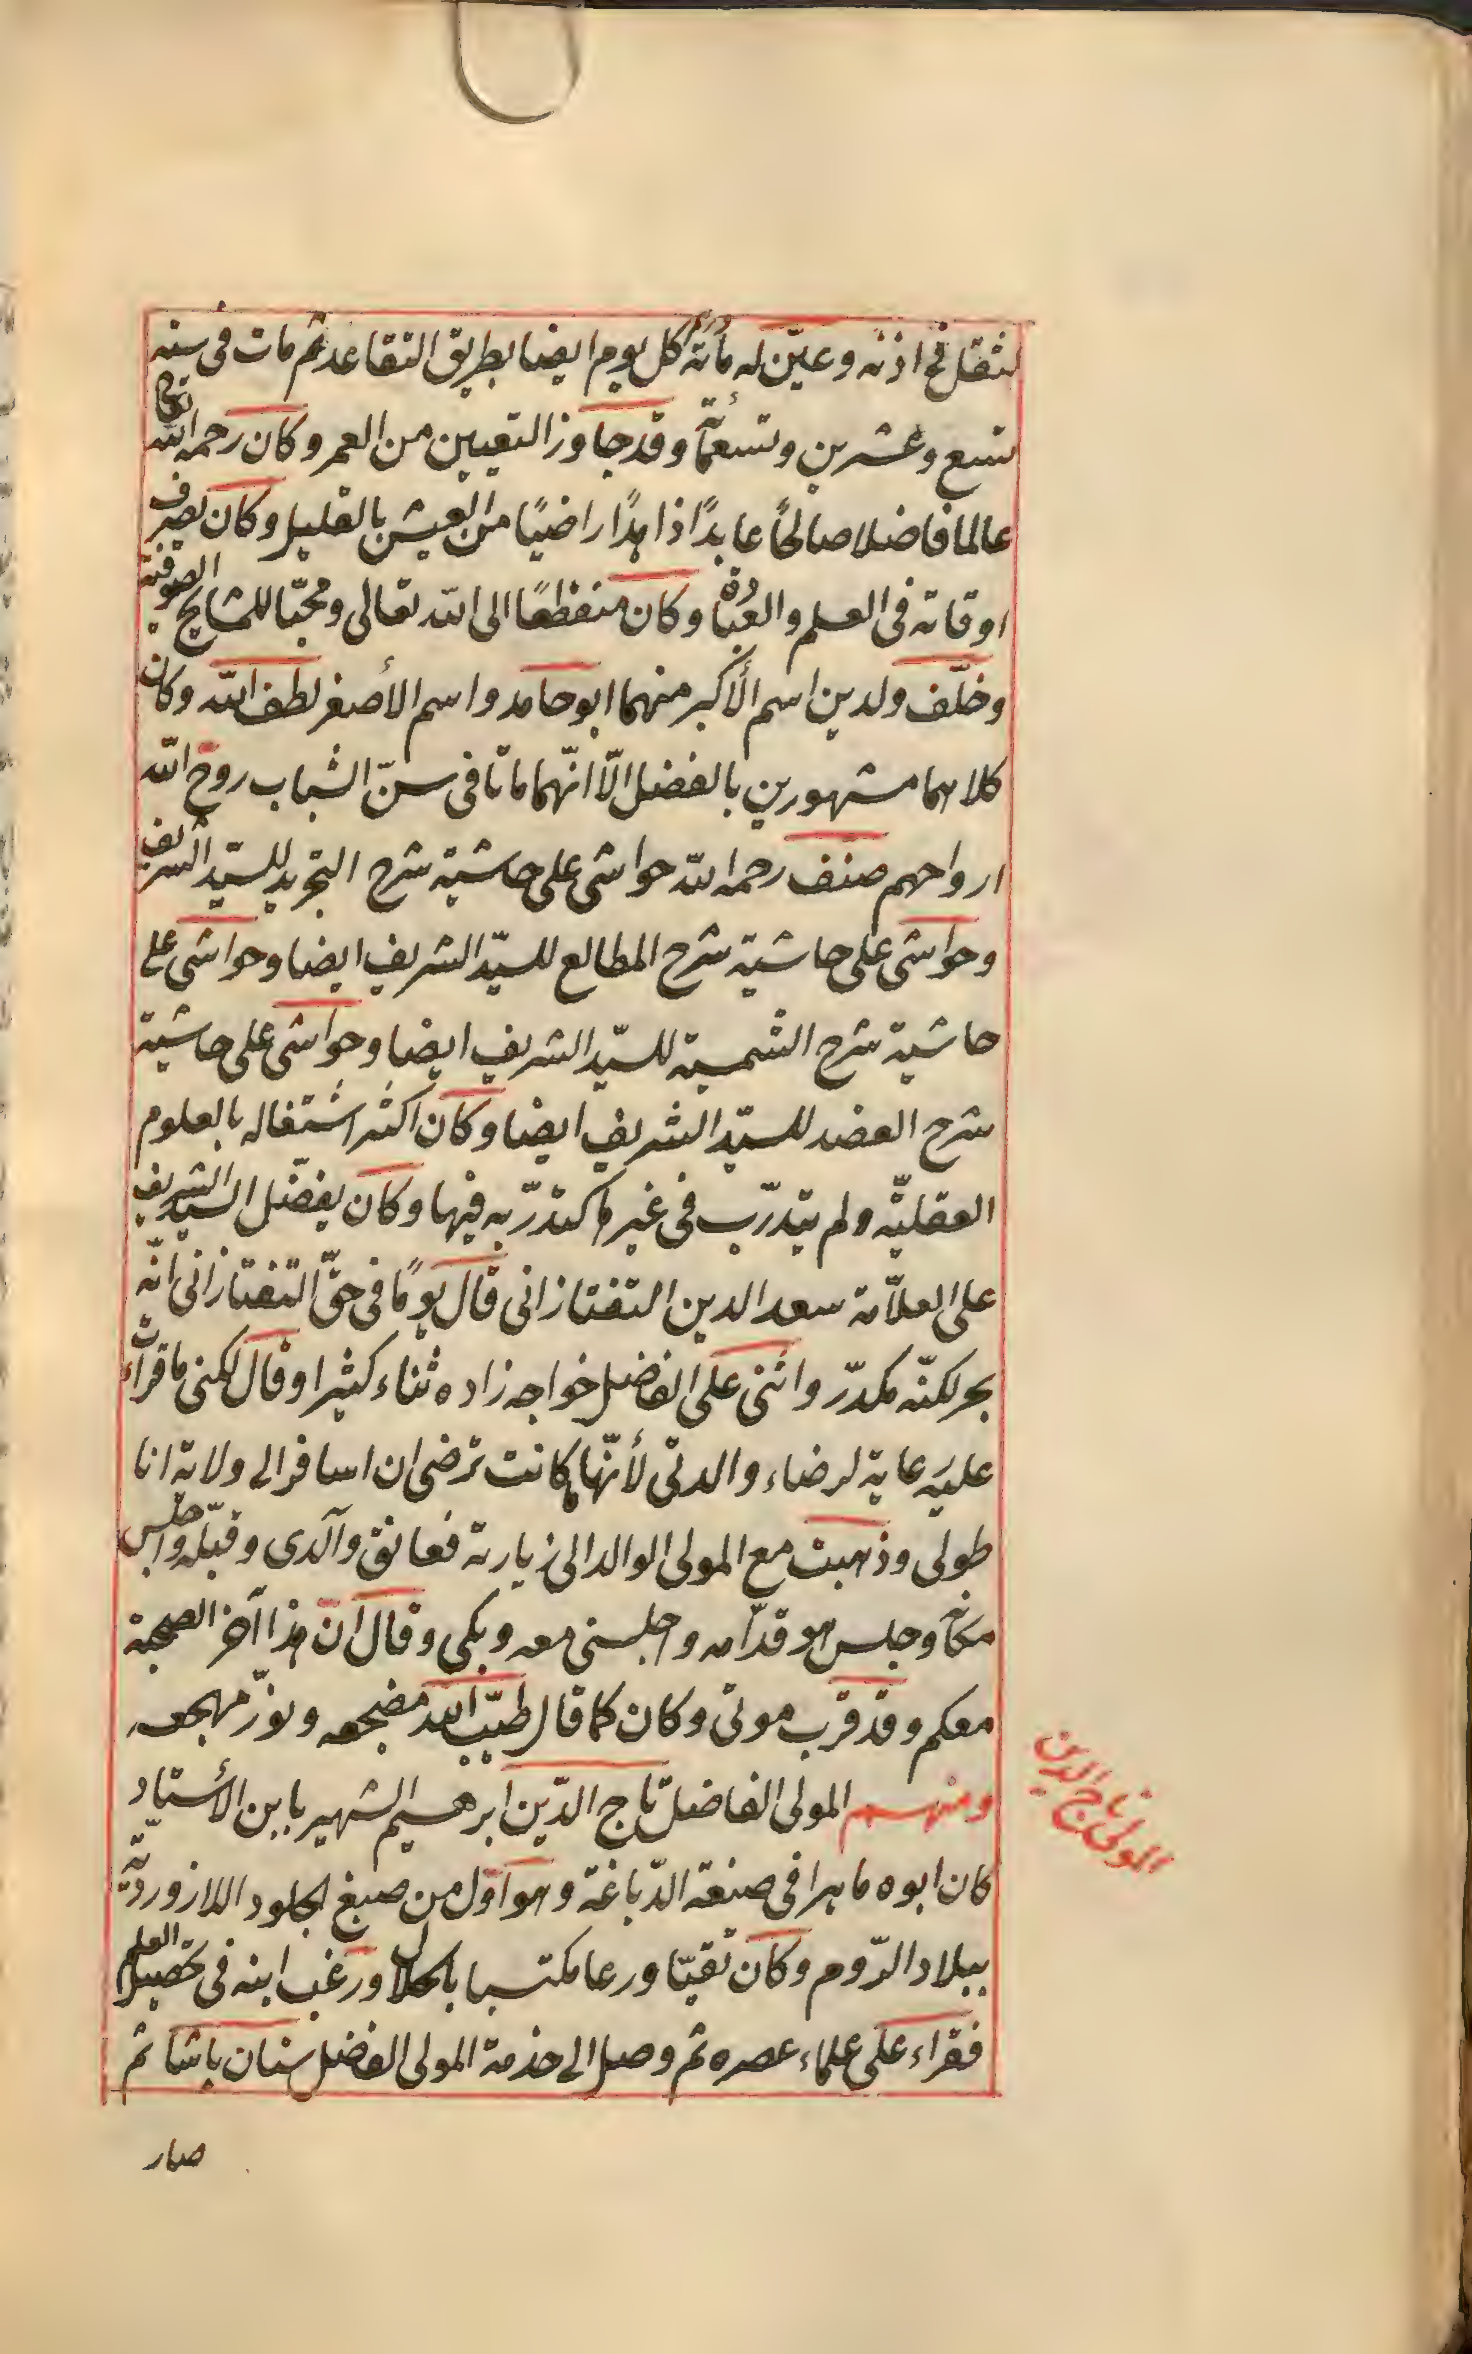 لثقل فى اذنه وعيّن له مأته درهم كل يوم ايضا بطريق التقاعد ثم مات فى سنه
تسع وعشرين وتسعمأئة وقد جاوز التسعين من العمر وكان رحمه الله تعالى
عالما فاضلا صالحًا عابدًا زاهدًا راضيًا من العيش بالقليل وكان يصرف
اوقاته فى العلم والعبادة وكان منقطعًا الى الله تعالى ومحبّا للمشايخ الصوفية
وخلّف ولدين اسم الأكبر منهما ابو حامد واسم الأصغر لطف الله وكان
كلاهما مشهورين بالفضل الّا انّهما ماتا فى سنّ الشباب روح الله
ارواحهم صنف رحمه الله حواشى على حاشية شرح التجريد للسيّد الشريف
وحواشى على حاشية شرح المطالع للسيّد الشريف ايضا وحواشى على
حاشية شرح الشمسية للسيّد الشريف ايضا وحواشى على حاشية
شرح العضد للسيّد الشريف ايضا وكان اكثر اشتغاله بالعلوم
العقليّة ولم يتدرّب فى غيرها كتدرّبه فيها وكان يفضّل السيّد الشريف
على العلاّمة سعد الدين التفتازانى قال يومًا فى حقّ التفتازانى انّه
بحر لكنّه مكدّر واثنى على الفاضل خواجه زاده ثناء كثيرا وقال لكنى ما قرأت
عليه رعاية لرضاء والدتى لأنّها ما كانت ترضى ان اسافر الى ولاية انا
طولى وذهبت مع المولى الوالد الى زيارته فعانق والدى وقبّله واجلس
مكانه وجلس هو قدّامه واجلسنى معه وبكى وقال ان هذا آخر الصحبة
معكم وقد قرب موتى وكان كما قال طيّب الله مضجعه ونوّر مهجعه
ومنهم المولى الفاضل تاج الدّين ابرهيم الشهير بابن الأستاد
المولى تاج الدين
كان ابوه ماهرا فى صنعة الدّباغة وهو اوّل من صبغ الجلود اللازورديّة
ببلاد الرّوم وكان تقيّا ورعا مكتسبا بالحلال ورغب ابنه فى تحصيل العلم
فقراء على علماء عصره ثم وصل الى خدمة المولى الفاضل سنان پاشا ثم
صار